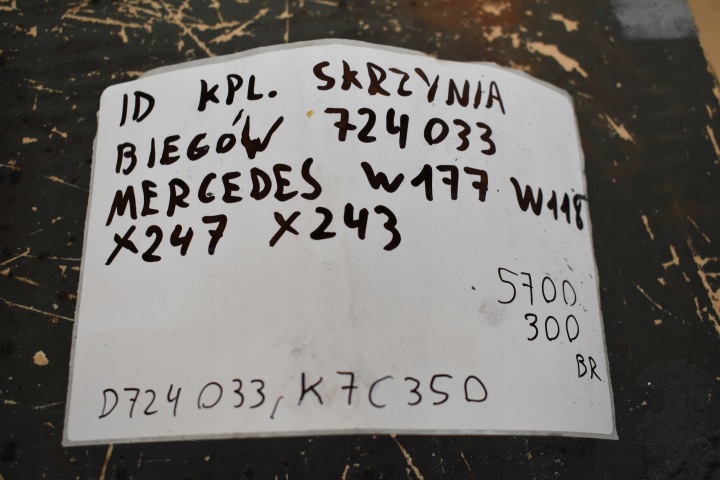 ID KPL. SKRZYNIA
BIEGÓW 724033
MERCEDES W177 W118
X247 X243
5700
300
BR
D724033, K7C350